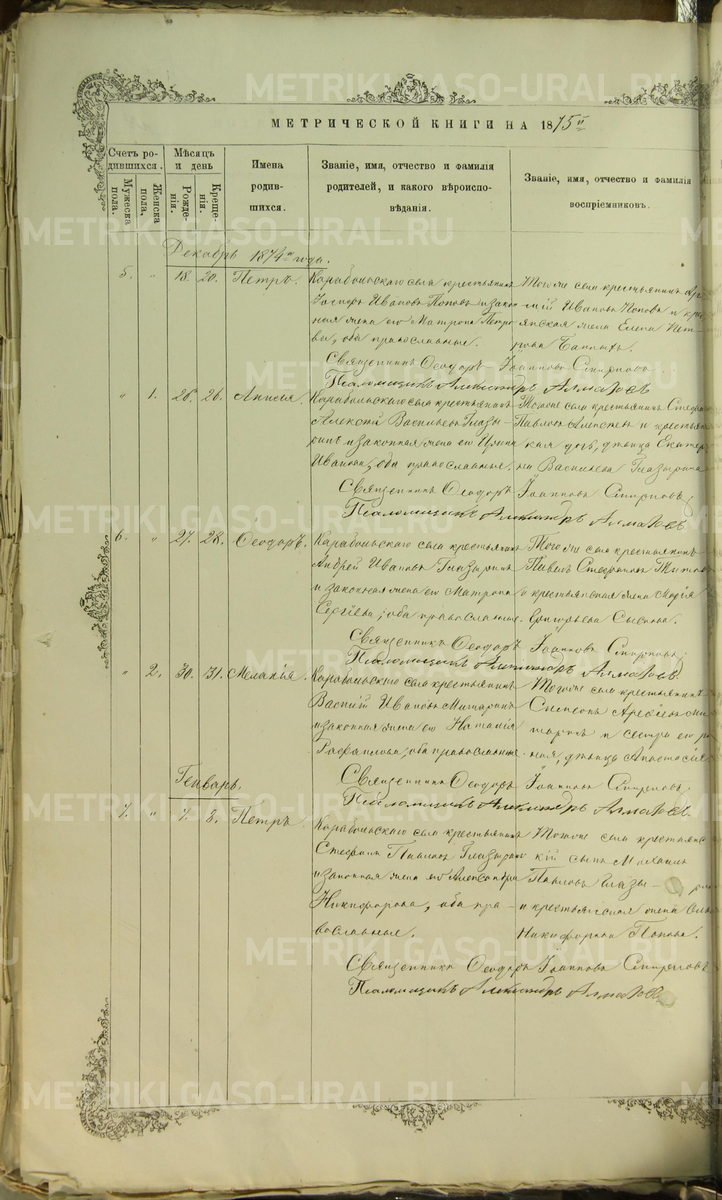 МЕТРИЧЕСКОЙ КНИГИ НА 1875й
Счетъ родившихся.
Мужеска пола.
Женска пола.
Мѣсяцъ и день
Рожденія.
Крещенія.
Имена родившихся.
Званіе, имя, отчество и фамилія родителей, и какого вѣроисповѣданія.
Званіе, имя, отчество и фамилія воспріемниковъ.
Декабрь 1874го года.
5. " 18. 20. Петръ.
Карабольскаго села крестьянинъ
Іосифъ Ивановъ Поповъ и законная жена его Матрона Петрова, оба православные.
Того же села крестьянинъ
Ивановъ Поповъ и крестьянская жена Елена Петрова
Священникъ Ѳеодоръ Іоанновъ Смирновъ
Псаломщикъ Александръ Алмазовъ
" 1. 26. 26. Анисія.
Карабольскаго села крестьянинъ
Алексѣй Васильевъ Глазыринъ и законная жена его Ирина
Иванова, оба православные.
Того же села крестьянинъ
Павловъ и крестьянская дочь, дѣвица Екатерина Васильева Глазырина
Священникъ Ѳеодоръ Іоанновъ Смирновъ
Псаломщикъ Александръ Алмазовъ
6. " 27. 28. Ѳеодоръ.
Карабольскаго села крестьянинъ
Андрей Ивановъ Глазыринъ
и законная жена его Матрона
Сергѣева, оба православные.
Того же села крестьянинъ
Павелъ Стефановъ
и крестьянская жена Марія
Григорьева
Священникъ Ѳеодоръ Іоанновъ Смирновъ
Псаломщикъ Александръ Алмазовъ
" 2. 30. 31. Меланія.
Карабольскаго села крестьянинъ
Ивановъ
и законная жена его Наталія
Рафаилова, оба православные.
Того же села крестьянинъ
и сестра его
дѣвица Анастасія
Священникъ Ѳеодоръ Іоанновъ Смирновъ
Псаломщикъ Александръ Алмазовъ
Генварь.
1. " 7. 8. Петръ.
Карабольскаго села крестьянинъ
Стефанъ Павловъ Глазыринъ
и законная жена его Александра
Никифорова, оба православные.
Того же села крестьянскій сынъ Михаилъ
Павловъ Глазы-
и крестьянская жена
Никифорова Попова.
Священникъ Ѳеодоръ Іоанновъ Смирновъ
Псаломщикъ Александръ Алмазовъ
METRIKI.GASO-URAL.RU